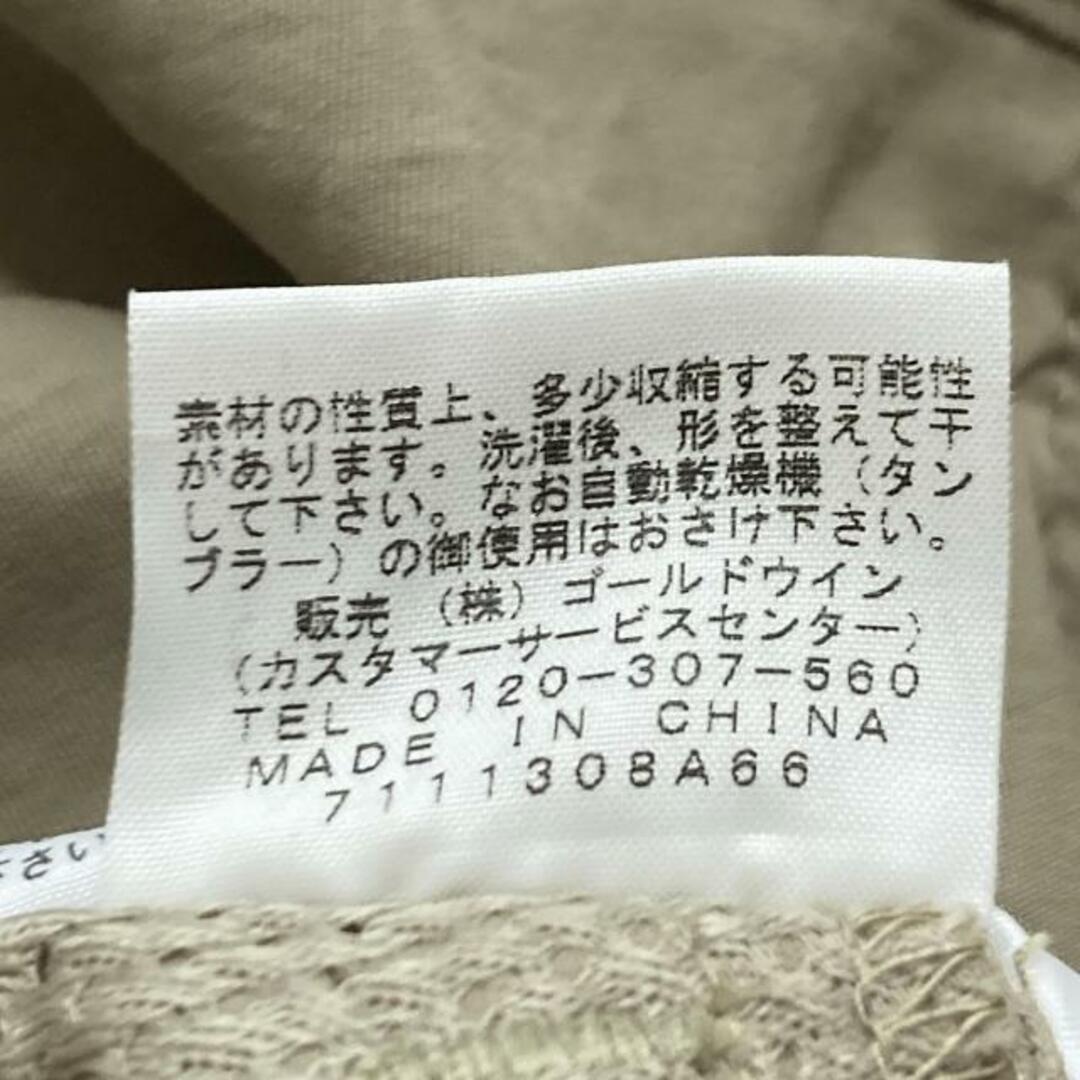 素材の性質上、多少収縮する可能性
があります。洗濯後、形を整えて干
して下さい。なお自動乾燥機（タン
ブラー）の御使用はおさけ下さい。
販売（株）ゴールドウイン
（カスタマーサービスセンター）
TEL 0120-307-560
MADE IN CHINA
7111308A66
さい